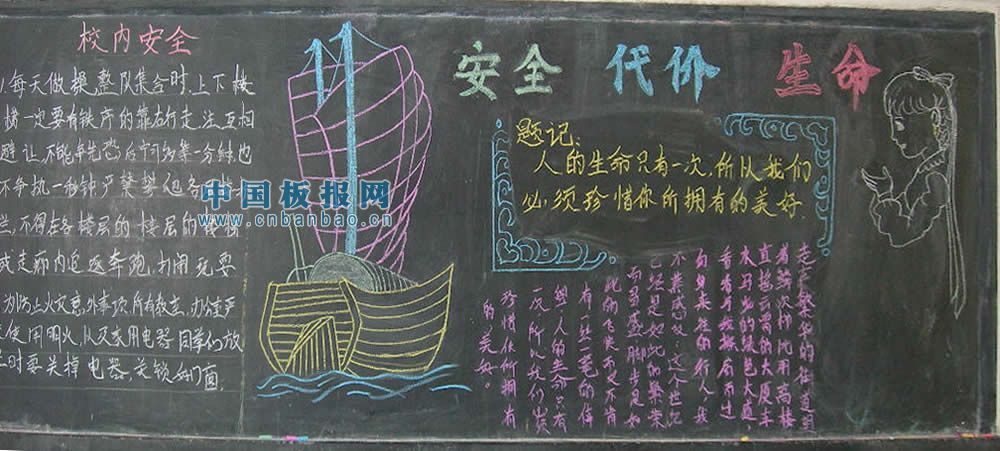 校内安全
1.每天做操,整队集合时,上下楼
梯一定要有秩序的靠右行走,注互相
避让,不能争先恐后,宁等一分钟,也
不争抢一秒钟,严禁攀
栏,不得在各楼层的楼层的
或走廊内追逐奔跑,打闹玩耍
为防止火灾意外事项,所有教室,办公室严
使用明火,以及家用电器,同学们放
时要关掉电器,关锁好门窗.
中国板报网
www.cnbanbao.cn
安全 代价 生命
题记:
人的生命只有一次,所以我们
必须珍惜你所拥有的美好.
走在繁华的街道
看鳞次栉比的高楼
直插云霄的大厦,车
水马龙的
看着与我擦肩而过
匆匆来往的行人,我
不禁感叹:这个世纪
已经是如此的繁荣
而昌盛,脚步是如
此的飞快,而又不肯
有一丝一毫的停
想:人的生命只有
一次,所以我们必须
珍惜你所拥有
的美好。